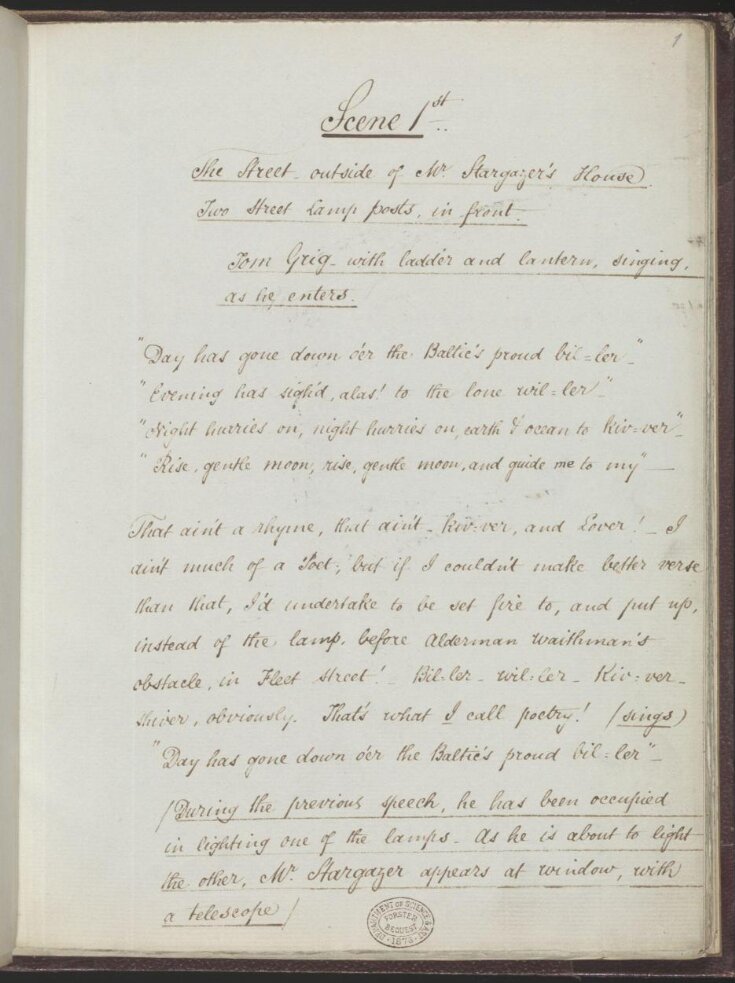 1
Scene 1st..
The Street - outside of Mr. Stargazer's House)
Two Street Lamp posts, in front.
Tom Grig - with ladder and lantern, singing,
as he enters.
"Day has gone down o'er the Baltic's proud bil=ler" _
"Evening has sigh'd, alas! to the lone wil=ler"
"Night hurries on, night hurries on, earth & ocean to kiv=ver" _
"Rise, gentle moon, rise, gentle moon, and guide me to my" __
That ain't a rhyme, that ain't - kiv=ver, and Lover! _ I
ain't much of a Poet; but if I couldn't make better verse
than that, I'd undertake to be set fire to, and put up,
instead of the lamp, before Alderman Waithman's
obstacle, in Fleet Street! _ Bil=ler _ wil=ler _ Kiv=ver _
shiver, obviously. That's what I call poetry! (sings)
"Day has gone down o'er the Baltic's proud bil=ler" _
(During the previous speech, he has been occupied
in lighting one of the lamps - As he is about to light
the other, Mr. Stargazer appears at window, with
a telescope)
DEPARTMENT OF SCIENCE & ART
FORSTER
BEQUEST
1876